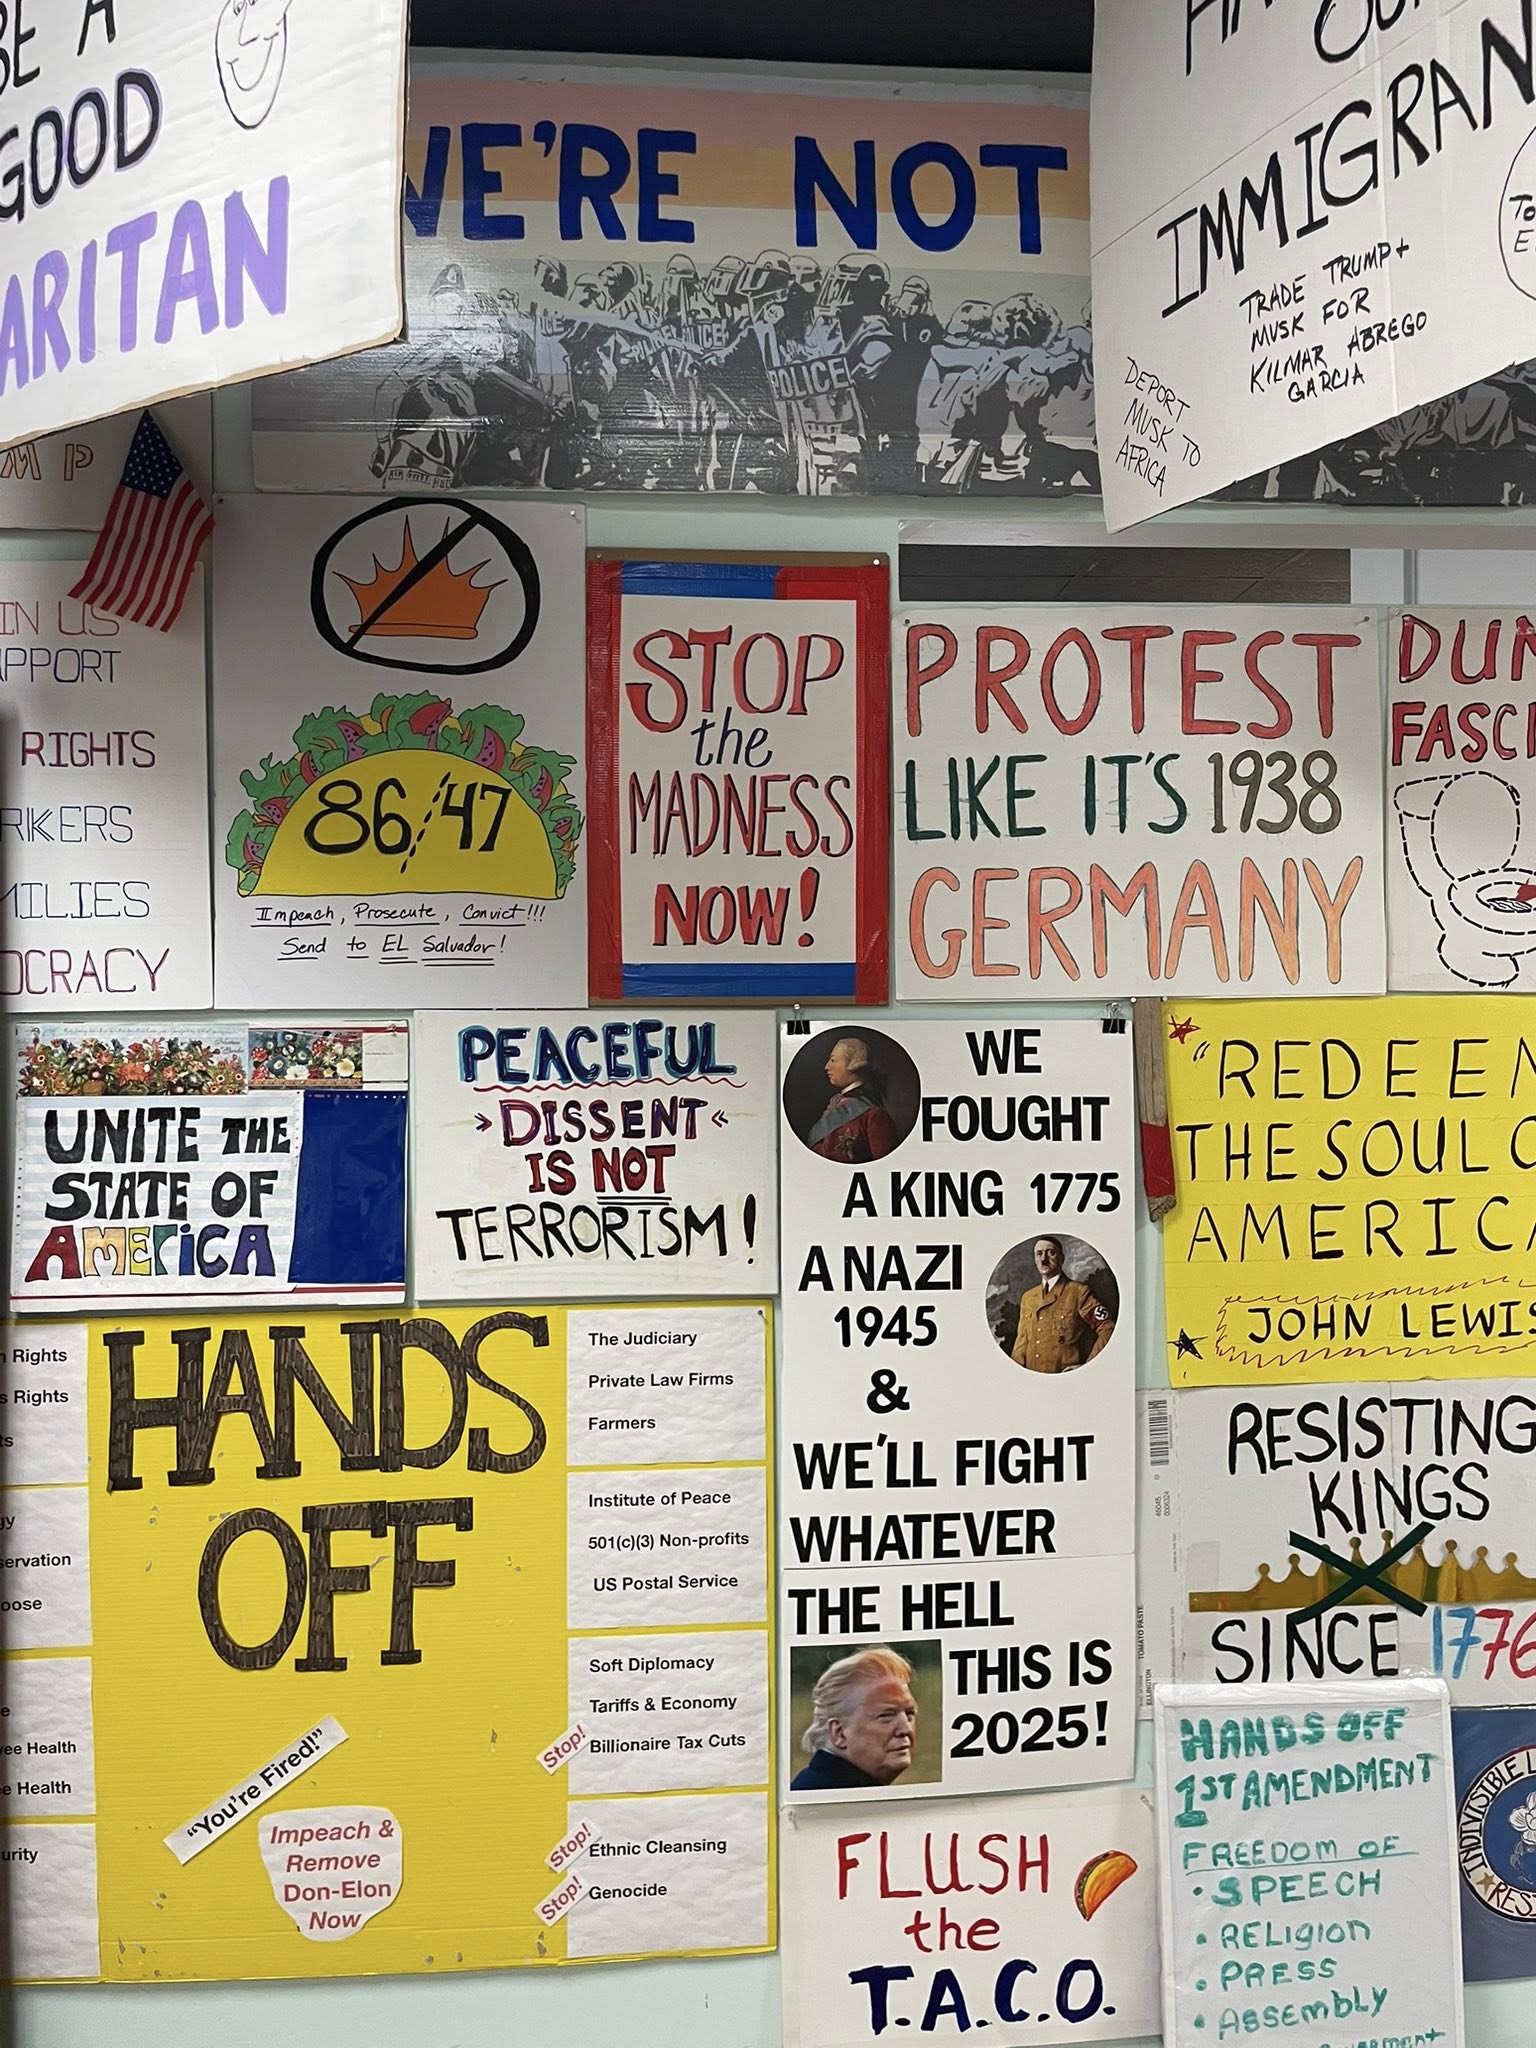 BE A
GOOD
ARITAN
WE'RE NOT
POLICE
POLICE
IMMIGRAN
TRADE TRUMP +
MUSK FOR
KILMAR ABREGO
GARCIA
DEPORT
MUSK TO
AFRICA
TO
E
MP
IN US
PPORT
RIGHTS
RKERS
MILIES
OCRACY
86/47
Impeach, Prosecute, Convict!!!
Send to EL Salvador!
STOP
the
MADNESS
NOW!
PROTEST
LIKE IT'S 1938
GERMANY
DUM
FASCI
UNITE THE
STATE OF
AMERiCA
PEACEFUL
»DISSENT«
IS NOT
TERRORISM!
WE
FOUGHT
A KING 1775
A NAZI
1945
&
WE'LL FIGHT
WHATEVER
THE HELL
THIS IS
2025!
"REDEEM
THE SOUL O
AMERICA
JOHN LEWIS
RESISTING
KINGS
SINCE 1776
TOMATO PASTE
HANDS
OFF
Rights
s Rights
ts
gy
servation
oose
e
ee Health
e Health
urity
The Judiciary
Private Law Firms
Farmers
Institute of Peace
501(c)(3) Non-profits
US Postal Service
Soft Diplomacy
Tariffs & Economy
Stop! Billionaire Tax Cuts
Stop! Ethnic Cleansing
Stop! Genocide
"You're Fired!"
Impeach &
Remove
Don-Elon
Now
FLUSH
the
T.A.C.O.
HANDS OFF
1ST AMENDMENT
FREEDOM OF
• SPEECH
• RELIGION
• PRESS
• ASSEMBLY
INDIVISIBLE
RES